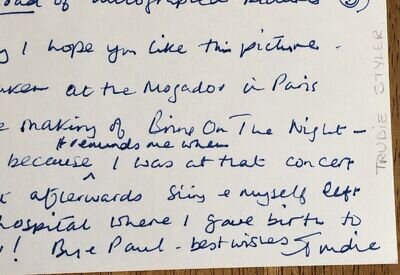 of autographed pictures
y I hope you like this picture.
aken at the Mogador in Paris
e making of Bring On The Night -
it reminds me when
because ^ I was at that concert
afterwards Sting & myself left
hospital where I gave birth to
! Bye Paul - best wishes Trudie
TRUDIE STYLER